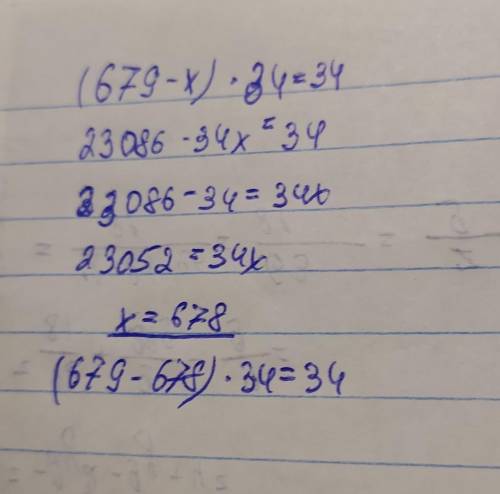 (679-x)·34=34
23086-34x=34
23086-34=34x
23052=34x
x=678
(679-678)·34=34